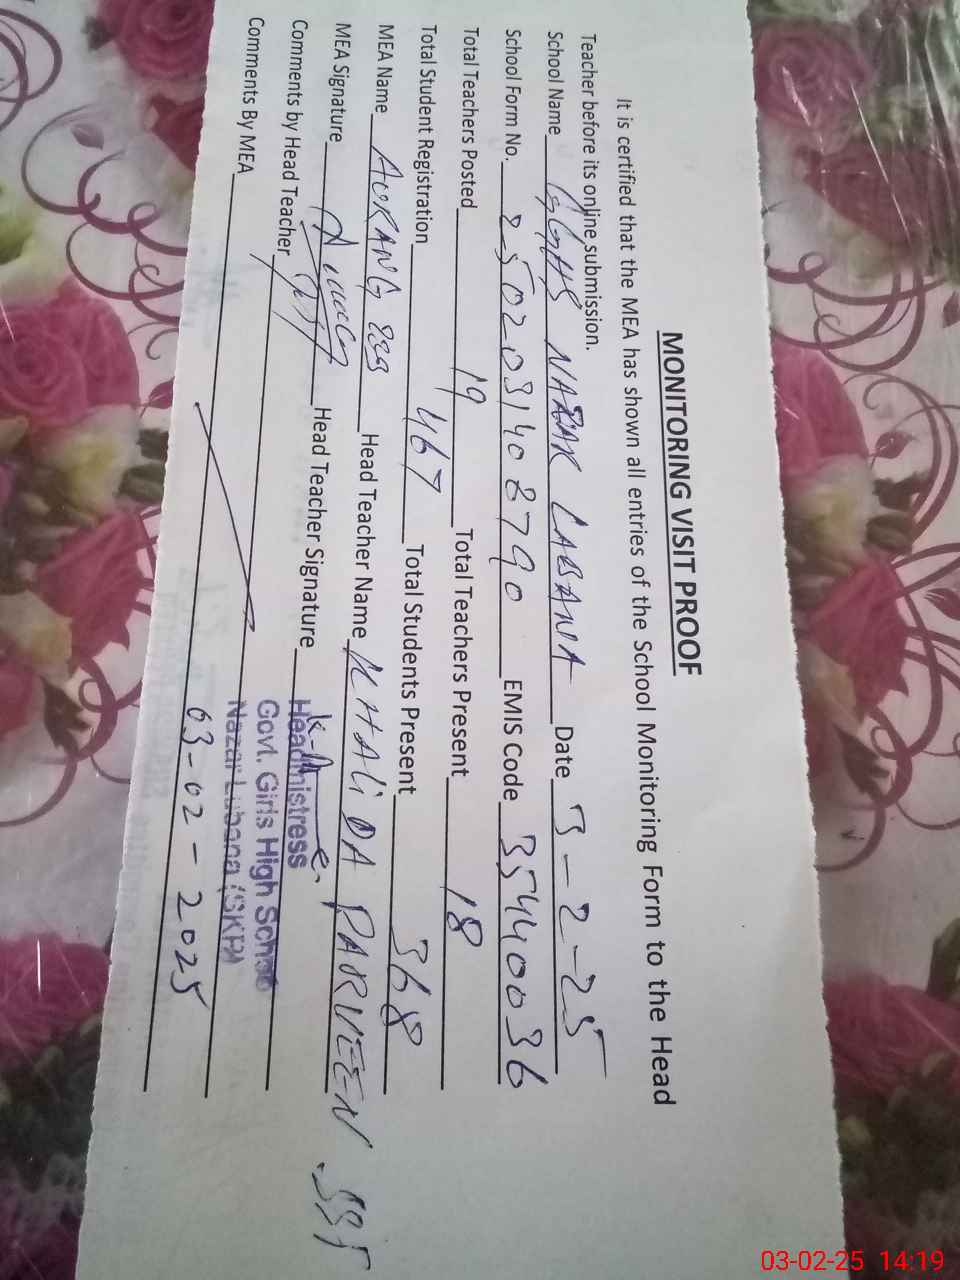 MONITORING VISIT PROOF
It is certified that the MEA has shown all entries of the School Monitoring Form to the Head
Teacher before its online submission.
School Name GGHS NAZAR LABANA Date 3-2-25
School Form No. 2502031408790 EMIS Code 35440036
Total Teachers Posted 19 Total Teachers Present 18
Total Student Registration 467 Total Students Present 368
MEA Name AURANG 233 Head Teacher Name KHALIDA PARVEEN SST
MEA Signature Head Teacher Signature
Comments by Head Teacher
Comments By MEA
Headmistress
Govt. Girls High School
Nazar Lubana (SKP)
03-02-2025
03-02-25 14:19